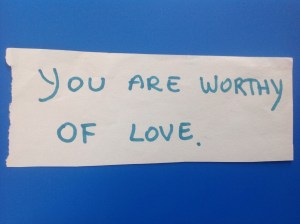 YOU ARE WORTHY
OF LOVE.